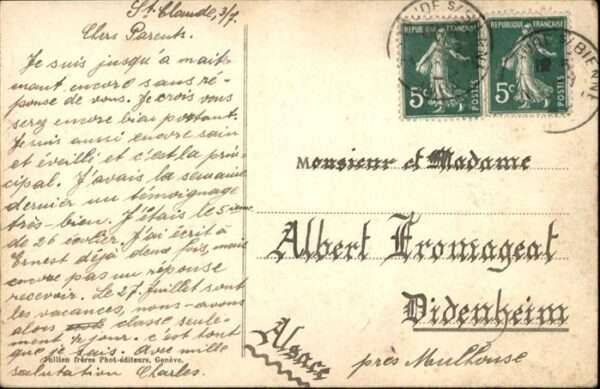 St. Claude, 3/7.
Chers Parents.
Je suis jusqu'à mait-
mant encore sans ré-
ponse de vous. Je crois vous
serez encore bien portant.
Je suis aussi encore sain
et éveillé et c'est la prin-
cipal. J'avais la semaine
dernier un témoignage
très-bien. J'étais le 5ieme
de 26 écolier. J'ai écrit à
Ernest déjà deux fois, mais
encore pas un réponse
recevoir. Le 27 juillet sont
les vacances, nous avons
alors classe seule-
ment jour. c'est tout
que je sais. Avec mille
salutation Charles.
Jullien frères Phot-éditeurs, Genève.
REPUBLIQUE FRANÇAISE
5c
POSTES
REPUBLIQUE FRANÇAISE
5c
POSTES
Monsieur et Madame
Albert Fromageat
Didenheim
près Moulhouse
Alsace